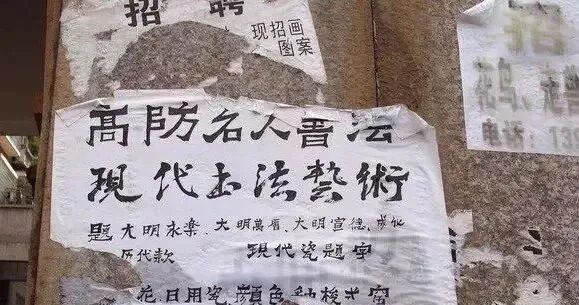 招聘
现招画
图案
电话：13
高防名人晋法
現代书法藝術
题大明永樂、大明萬曆、大明宣德、成化
历代款 現代瓷題字
花,日用瓷,顔色釉梭式窑